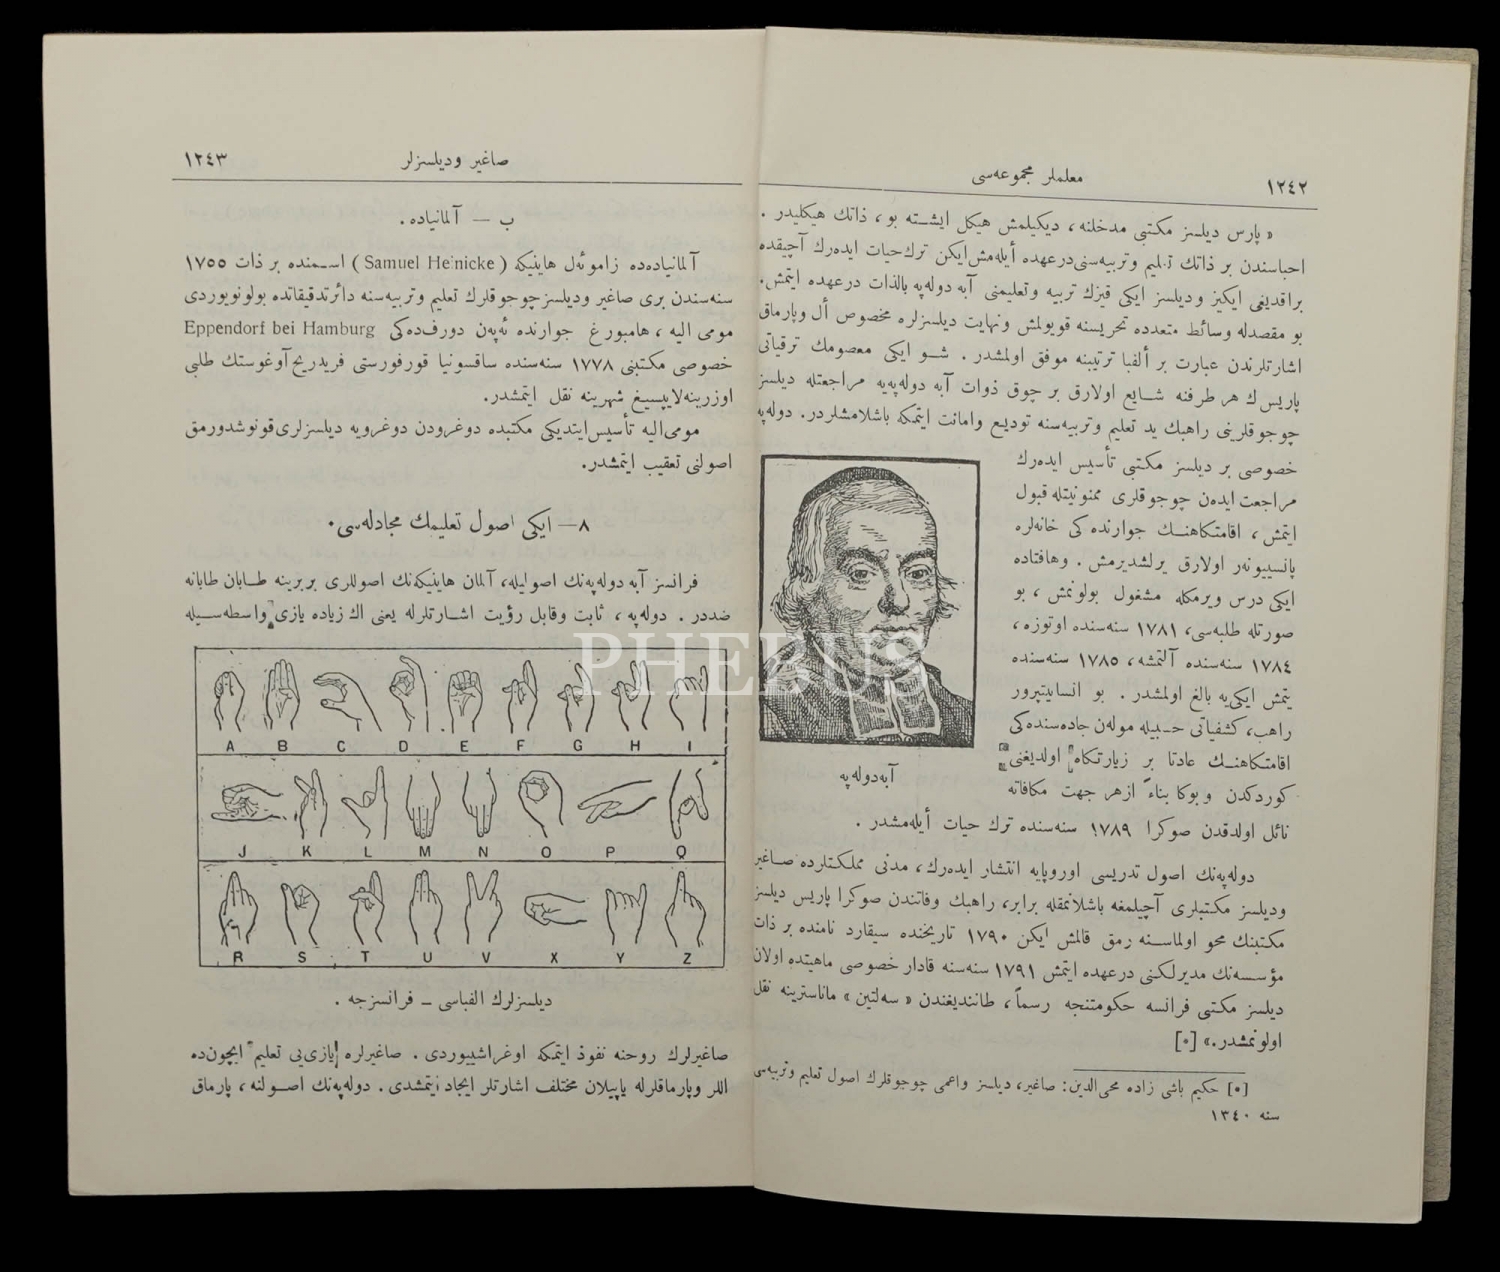 ١٢٤٢
معلملر مجموعه‌سی
« پارس دیلسز مکتبی مدخلنه ، دیکیلمش هیکل ایشته بو ، ذاتك هیکلیدر .
احباسندن بر ذاتك تعلیم وتربیه‌سنی درعهده أیله‌مش ایکن ترك حیات ایده‌رك آچیقده
براقدیغی ایکیز ودیلسز ایکی قیزك تربیه وتعلیمنی آبه دوله‌په بالذات درعهده ایتمش.
بو مقصدله وسائط متعدده تحریسنه قویولمش ونهایت دیلسزلره مخصوص أل وپارماق
اشارتلرندن عبارت بر ألفبا ترتیبنه موفق اولمشدر . شو ایکی معصومك ترقیاتی
پاریس ك هر طرفنه شایع اولارق بر چوق ذوات آبه دوله‌په‌یه مراجعتله دیلسز
چوجوقلرینی راهبك ید تعلیم وتربیه‌سنه تودیع وامانت ایتمکه باشلامشلردر. دوله‌په
خصوصی بر دیلسز مکتبی تأسیس ایده‌رك
مراجعت ایده‌ن چوجوقلری ممنونیتله قبول
ایتمش ، اقامتکاهنك جوارنده کی خانه‌لره
پانسییونه‌ر اولارق یرلشدیرمش . وهافتاده
ایکی درس ویرمکله مشغول بولونمش ، بو
صورتله طلبه‌سی، ١٧٨١ سنه‌سنده اوتوزه ،
١٧٨٤ سنه‌سنده آلتمشه ، ١٧٨٥ سنه‌سنده
یتمش ایکی‌یه بالغ اولمشدر . بو انسانیتپرور
راهب، کشفیاتی حسبیله موله‌ن جاده‌سنده‌کی
اقامتکاهنك عادتا بر زیارتکاه اولدیغنی
کوردکدن وبوکا بناء ازهر جهت مکافاته
نائل اولدقدن صوکرا ١٧٨٩ سنه‌سنده ترك حیات أیله‌مشدر .
آبه دوله‌په
دوله‌په‌نك اصول تدریسی اوروپایه انتشار ایده‌رك ، مدنی مملکتلرده صاغیر
ودیلسز مکتبلری آچیلمغه باشلانمقله برابر، راهبك وفاتندن صوکرا پاریس دیلسز
مکتبنك محو اولماسنه رمق قالمش ایکن ١٧٩٠ تاریخنده سیقارد نامنده بر ذات
مؤسسه‌نك مدیرلکنی درعهده ایتمش ١٧٩١ سنه‌سنه قادار خصوصی ماهیتده اولان
دیلسز مکتبی فرانسه حکومتنجه رسماً ، طانندیغندن « سه‌لتین » ماناسترینه نقل
اولونمشدر.» [٠]
[٠] حکیم باشی زاده محی‌الدین: صاغیر، دیلسز واعمی چوجوقلرك اصول تعلیم وتربیه‌سی
سنه ١٣٤٠
صاغیر ودیلسزلر
١٢٤٣
ب — آلمانیاده .
آلمانیاده‌ده زاموئه‌ل هاینیکه ( Samuel Heinicke ) اسمنده بر ذات ١٧٥٥
سنه‌سندن بری صاغیر ودیلسزچوجوقلرك تعلیم وتربیه‌سنه دائرتدقیقاتده بولونویوردی
مومی الیه ، هامبورغ جوارنده ئه‌په‌ن دورف‌ده‌کی Eppendorf bei Hamburg
خصوصی مکتبنی ١٧٧٨ سنه‌سنده ساقسونیا قورفورستی فریدریخ آوغوستك طلبی
اوزرینه لایپسیغ شهرینه نقل ایتمشدر.
مومی‌الیه تأسیس ایتدیکی مکتبده دوغرودن دوغرویه دیلسزلری قونوشدورمق
اصولنی تعقیب ایتمشدر.
٨ — ایکی اصول تعلیمك مجادله‌سی .
فرانسز آبه دوله‌په‌نك اصولیله، آلمان هاینیکه‌نك اصوللری بربرینه طابان طابانه
ضددر . دوله‌په ، ثابت وقابل رؤیت اشارتلرله یعنی اك زیاده یازی واسطه‌سیله
A B C D E F G H I
J K L M N O P Q
R S T U V X Y Z
دیلسزلرك الفباسی — فرانسزجه .
صاغیرلرك روحنه نفوذ ایتمکه اوغراشییوردی . صاغیرلره یازی‌یی تعلیم ایچون‌ده
اللر وپارماقلرله یاپیلان مختلف اشارتلر ایجاد ایتمشدی . دوله‌په‌نك اصولنه ، پارماق
PHEBUS